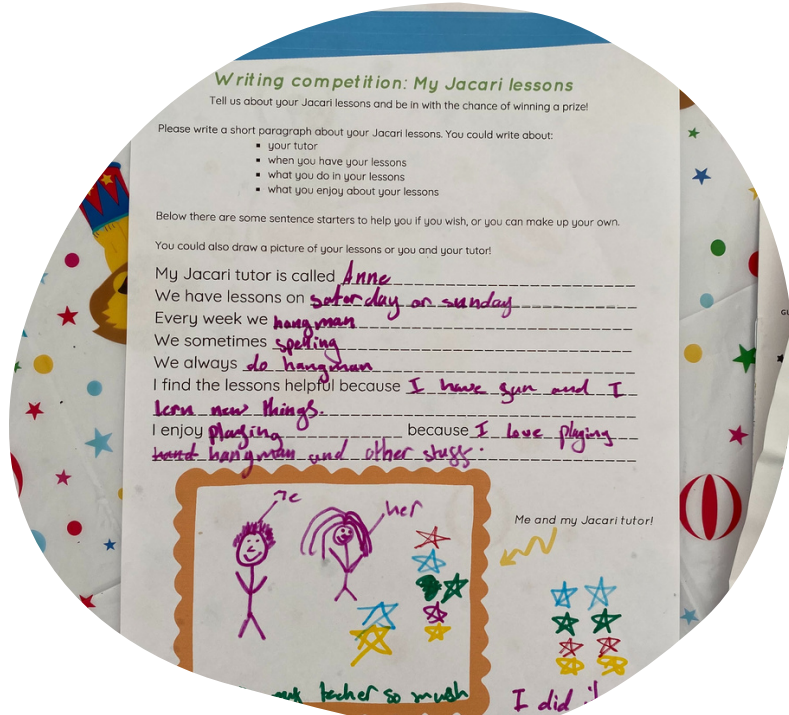 Writing competition: My Jacari lessons
Tell us about your Jacari lessons and be in with the chance of winning a prize!
Please write a short paragraph about your Jacari lessons. You could write about:
▪ your tutor
▪ when you have your lessons
▪ what you do in your lessons
▪ what you enjoy about your lessons
Below there are some sentence starters to help you if you wish, or you can make up your own.
You could also draw a picture of your lessons or you and your tutor!
My Jacari tutor is called Anne
We have lessons on saterday or sunday
Every week we hangman
We sometimes spelling
We always do hangman
I find the lessons helpful because I have gun and I
lern new things.
I enjoy playing because I love playing
hand hangman and other stugg.
me
her
Me and my Jacari tutor!
techer so mush
I did